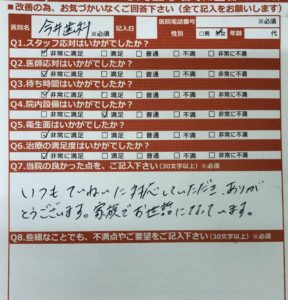 ■改善の為、お気づかいなくご回答下さい（全て記入をお願いします）
医院名 今井歯科 ※必須 記入日 医院電話番号 ※必須
性別 □男 年齢 代
Q1.スタッフ応対はいかがでしたか？
☑非常に満足 □満足 □普通 □不満 □非常に不満
Q2.医師応対はいかがでしたか？
☑非常に満足 □満足 □普通 □不満 □非常に不満
Q3.待ち時間はいかがでしたか？
☑非常に満足 □満足 □普通 □不満 □非常に不満
Q4.院内設備はいかがでしたか？
□非常に満足 ☑満足 □普通 □不満 □非常に不満
Q5.衛生面はいかがでしたか？
☑非常に満足 □満足 □普通 □不満 □非常に不満
Q6.治療の満足度はいかがでしたか？
☑非常に満足 □満足 □普通 □不満 □非常に不満
Q7.当院の良かった点を、ご記入下さい(30文字以上) ※必須
いつもていねいに対応していただき、ありが
とうございます。家族でお世話になっています。
Q8.些細なことでも、不満点やご要望をご記入下さい(30文字以上) ※必須